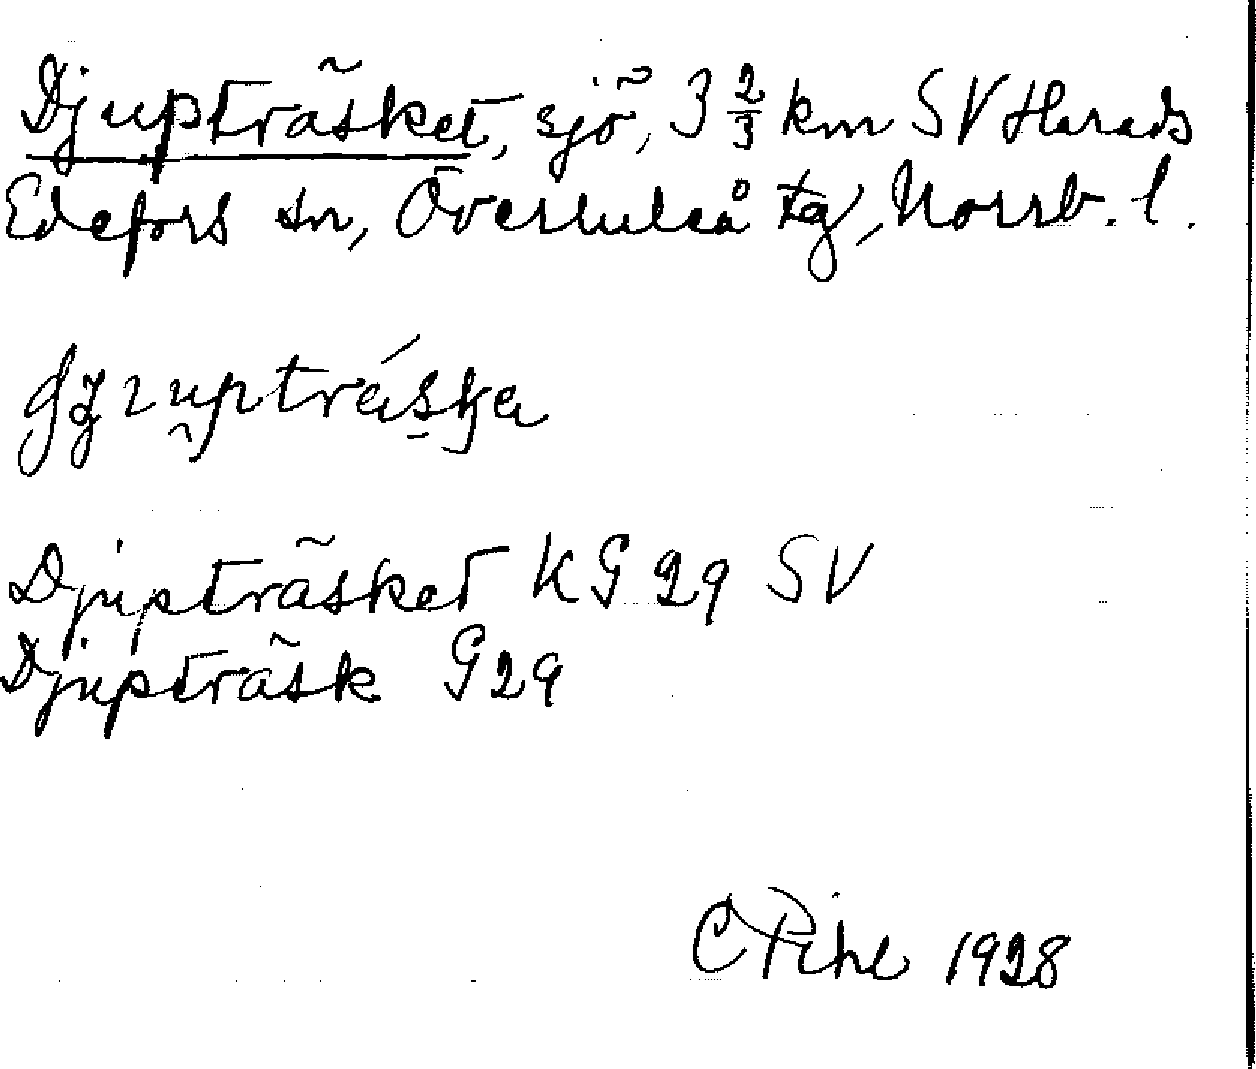 Djupträsket, sjö, 3 2/3 km SV Harads
Edefors sn, Överluleå tg, Norrb. l.
Djupträsket KG 29 SV
Djupträsk G29
C Pihl 1928